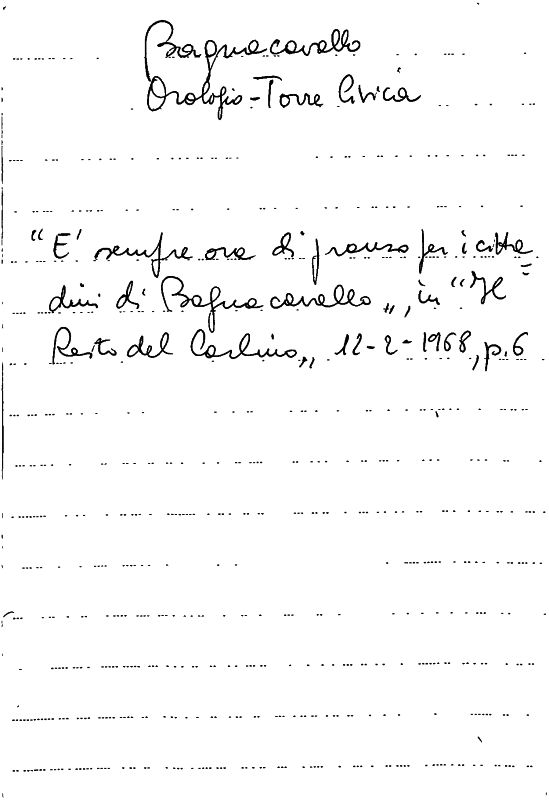 Bagnacavallo
Orologio-Torre Civica
"E' sempre ora di pranzo per i citta=
dini di Bagnacavallo„, in "Il
Resto del Carlino„, 12-2-1968, p.6